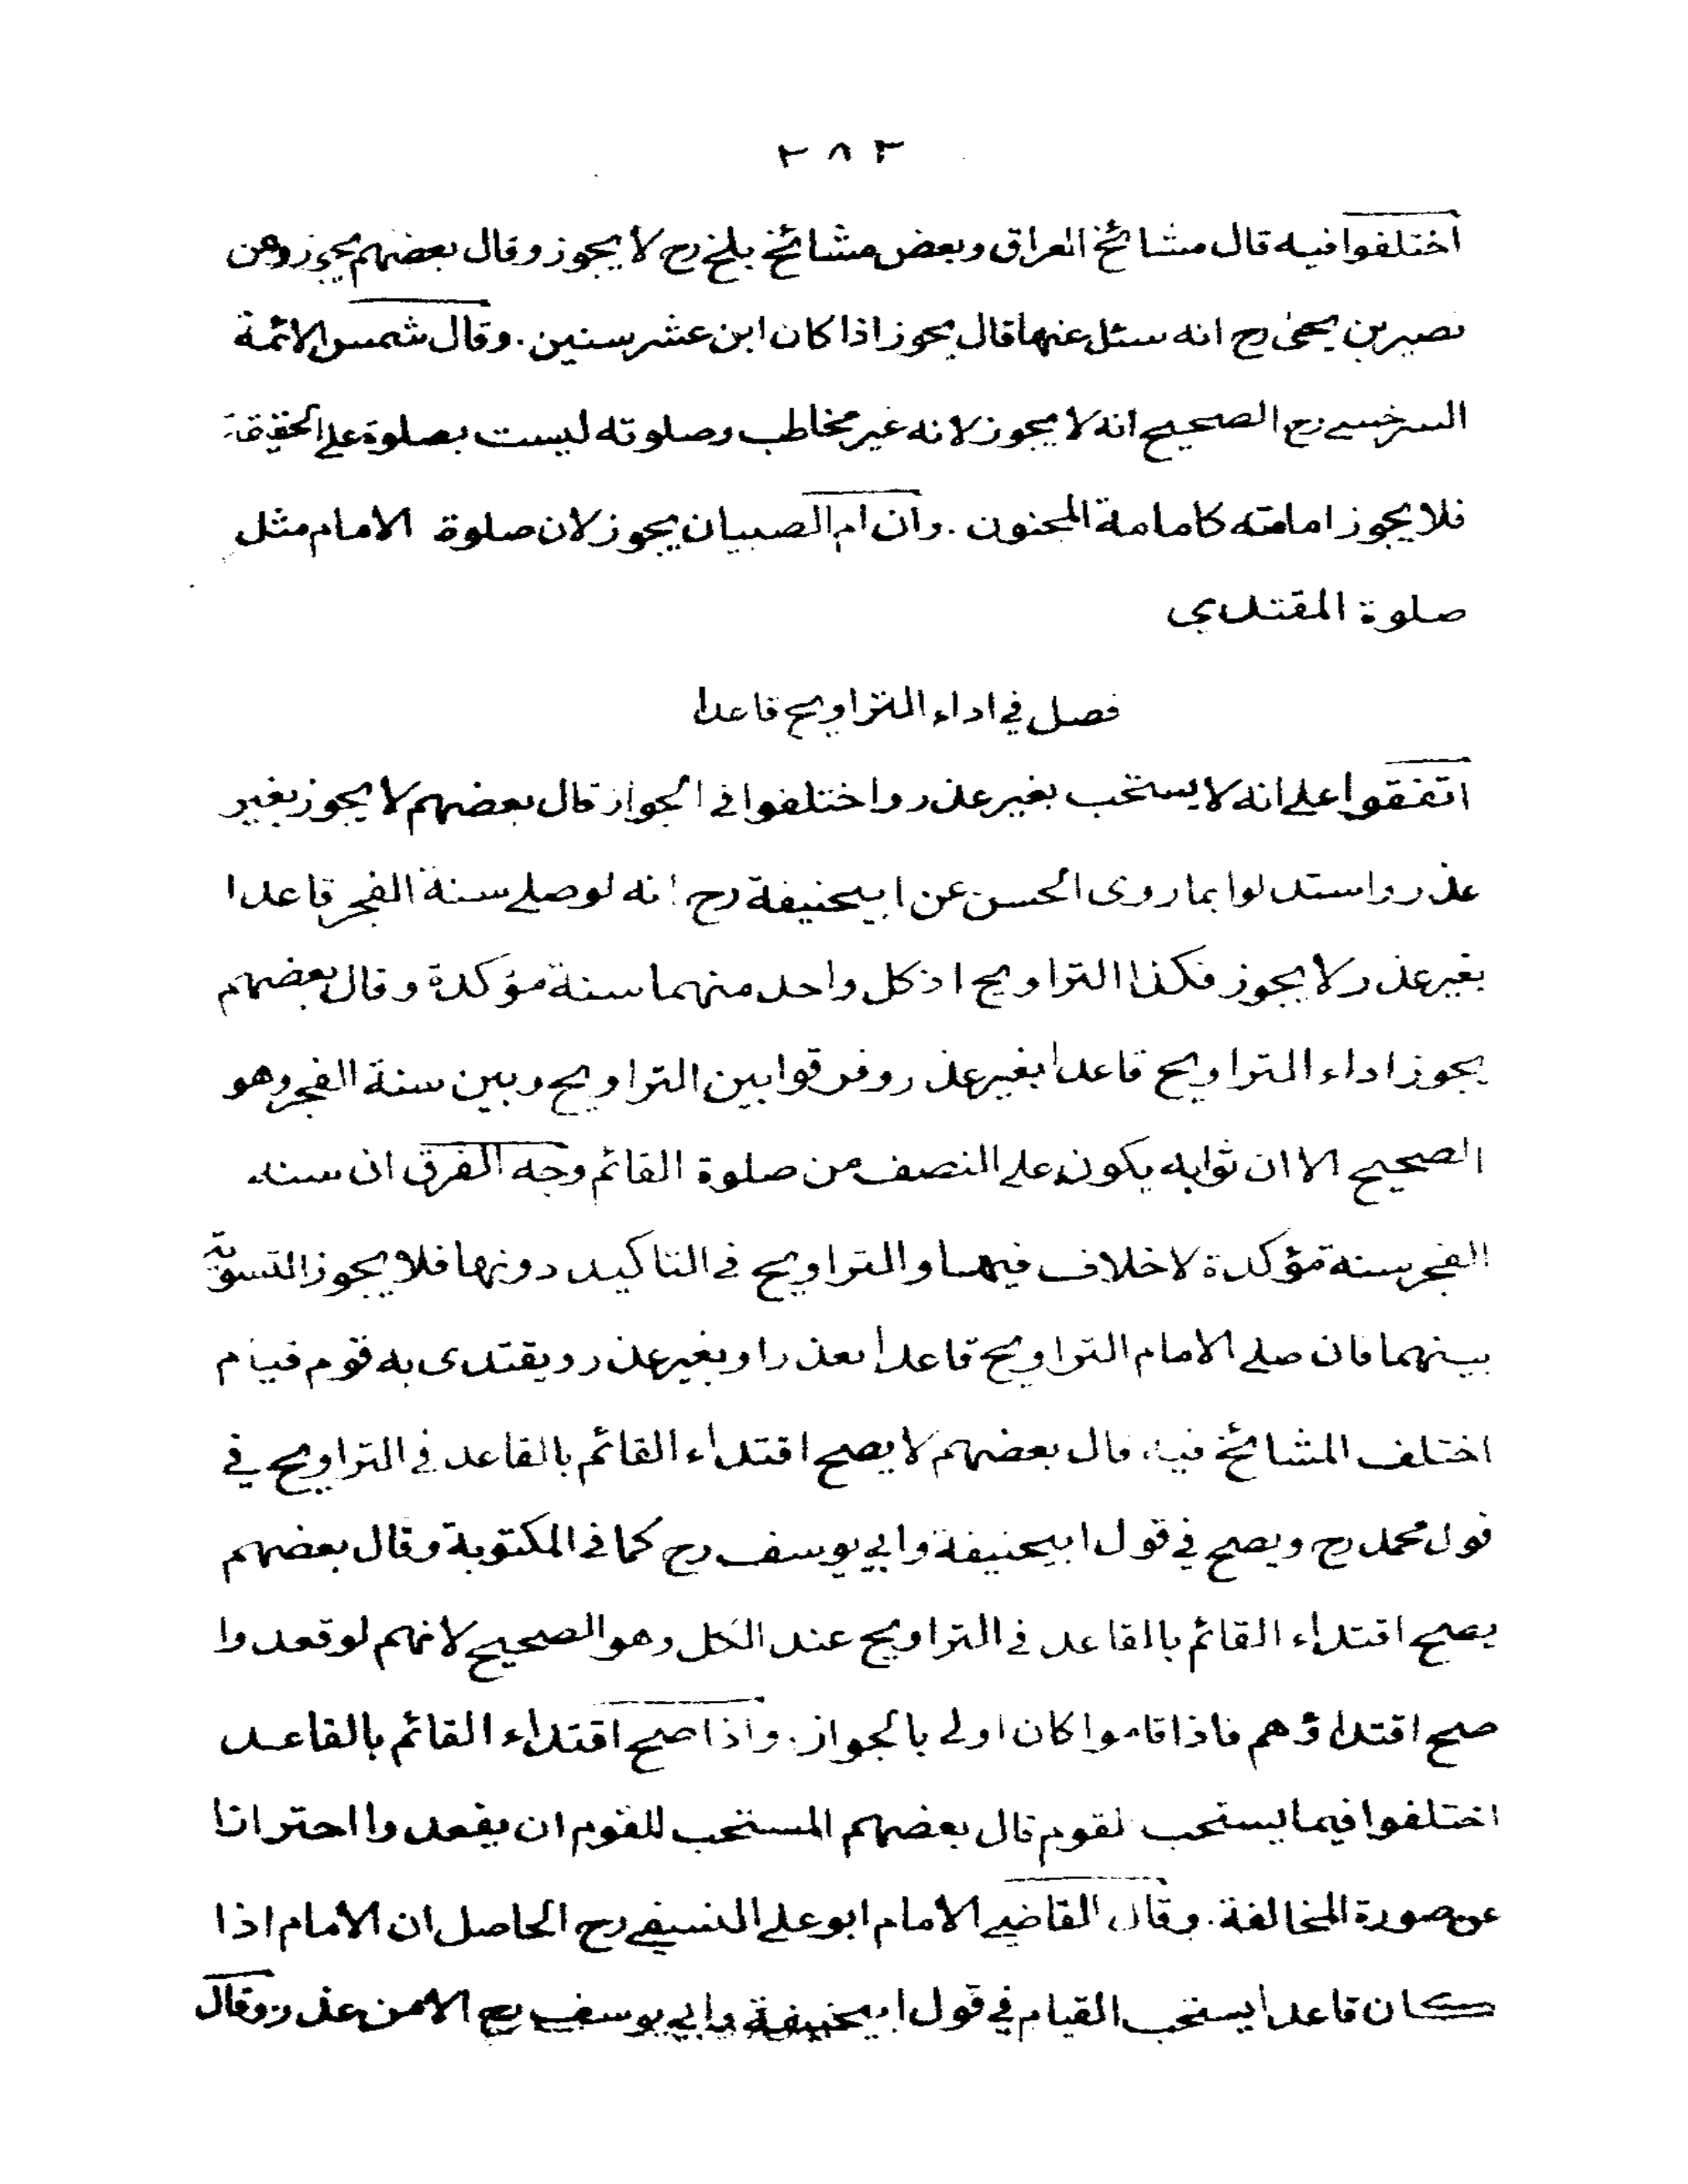 ٢٨٣
اختلفوا فيه قال مشائخ العراق وبعض مشائخ بلخ رح لا يجوز وقال بعضهم يجوز وعن
نصير بن يحيى رح انه سئل عنها قال يجوز اذا كان ابن عشر سنين . وقال شمس الائمة
السرخسي رح الصحيح انه لا يجوز لانه غير مخاطب وصلوته ليست بصلوة على الحقيقة
فلا يجوز امامته كامامة المجنون . وان ام الصبيان يجوز لان صلوة الامام مثل
صلوة المقتدي
فصل في اداء التراويح قاعدا
اتفقوا على انه لا يستحب بغير عذر واختلفوا في الجواز قال بعضهم لا يجوز بغير
عذر واستدلوا بما روى الحسن عن ابيحنيفة رح انه لو صلى سنة الفجر قاعدا
بغير عذر لا يجوز فكذا التراويح اذ كل واحد منهما سنة مؤكدة وقال بعضهم
يجوز اداء التراويح قاعدا بغير عذر وفرقوا بين التراويح وبين سنة الفجر وهو
الصحيح الا ان ثوابه يكون على النصف من صلوة القائم وجه الفرق ان سنة
الفجر سنة مؤكدة لا خلاف فيها والتراويح في التاكيد دونها فلا يجوز التسوية
بينهما فان صلى الامام التراويح قاعدا بعذر او بغير عذر ويقتدى به قوم قيام
اختلف المشائخ فيه قال بعضهم لا يصح اقتداء القائم بالقاعد في التراويح في
قول محمد رح ويصح في قول ابيحنيفة وابي يوسف رح كما في المكتوبة وقال بعضهم
يصح اقتداء القائم بالقاعد في التراويح عند الكل وهو الصحيح لانهم لو قعدوا
صح اقتداؤهم فاذا قاموا كان اولى بالجواز . واذا صح اقتداء القائم بالقاعد
اختلفوا فيما يستحب لقوم قال بعضهم المستحب للقوم ان يقعدوا احترازا
عن صورة المخالفة . وقال القاضي الامام ابو علي النسفي رح الحاصل ان الامام اذا
كان قاعدا يستحب القيام في قول ابيحنيفة وابي يوسف رح الا من عذر وقال